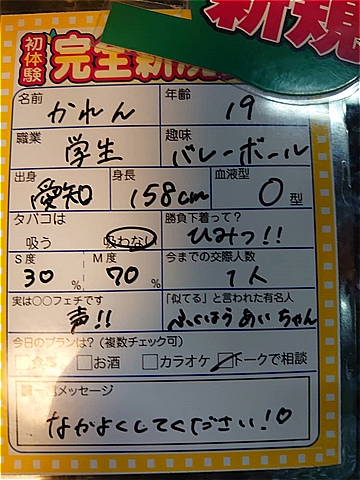 新規
初体験 完全新規
名前 かれん 年齢 19
職業 学生 趣味 バレーボール
出身 愛知 身長 158cm 血液型 O型
タバコは 吸う 吸わない 勝負下着って? ひみつ!!
S度 30% M度 70% 今までの交際人数 1人
実は○○フェチです 声!! 「似てる」と言われた有名人 ふくはらあいちゃん
今日のプランは?(複数チェック可)
お酒 カラオケ トークで相談
メッセージ
なかよくしてください!♡